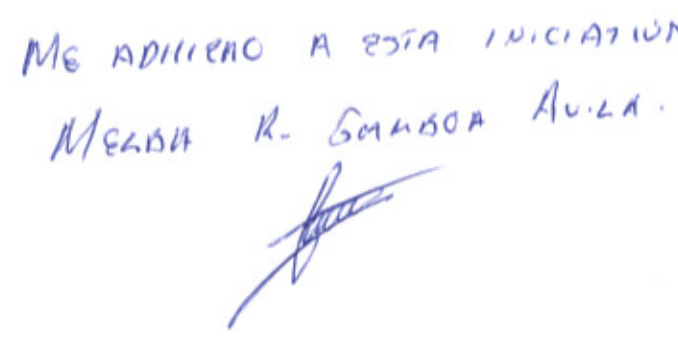 ME ADHIERO A ESTA INICIATIVA
MELBA R. GAMBOA AVILA.